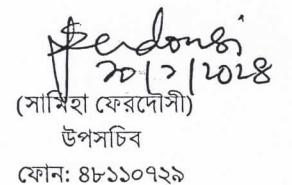 Ferdousi
(সামিহা ফেরদৌসী)
উপসচিব
ফোন: ৪৮১১০৭২৯